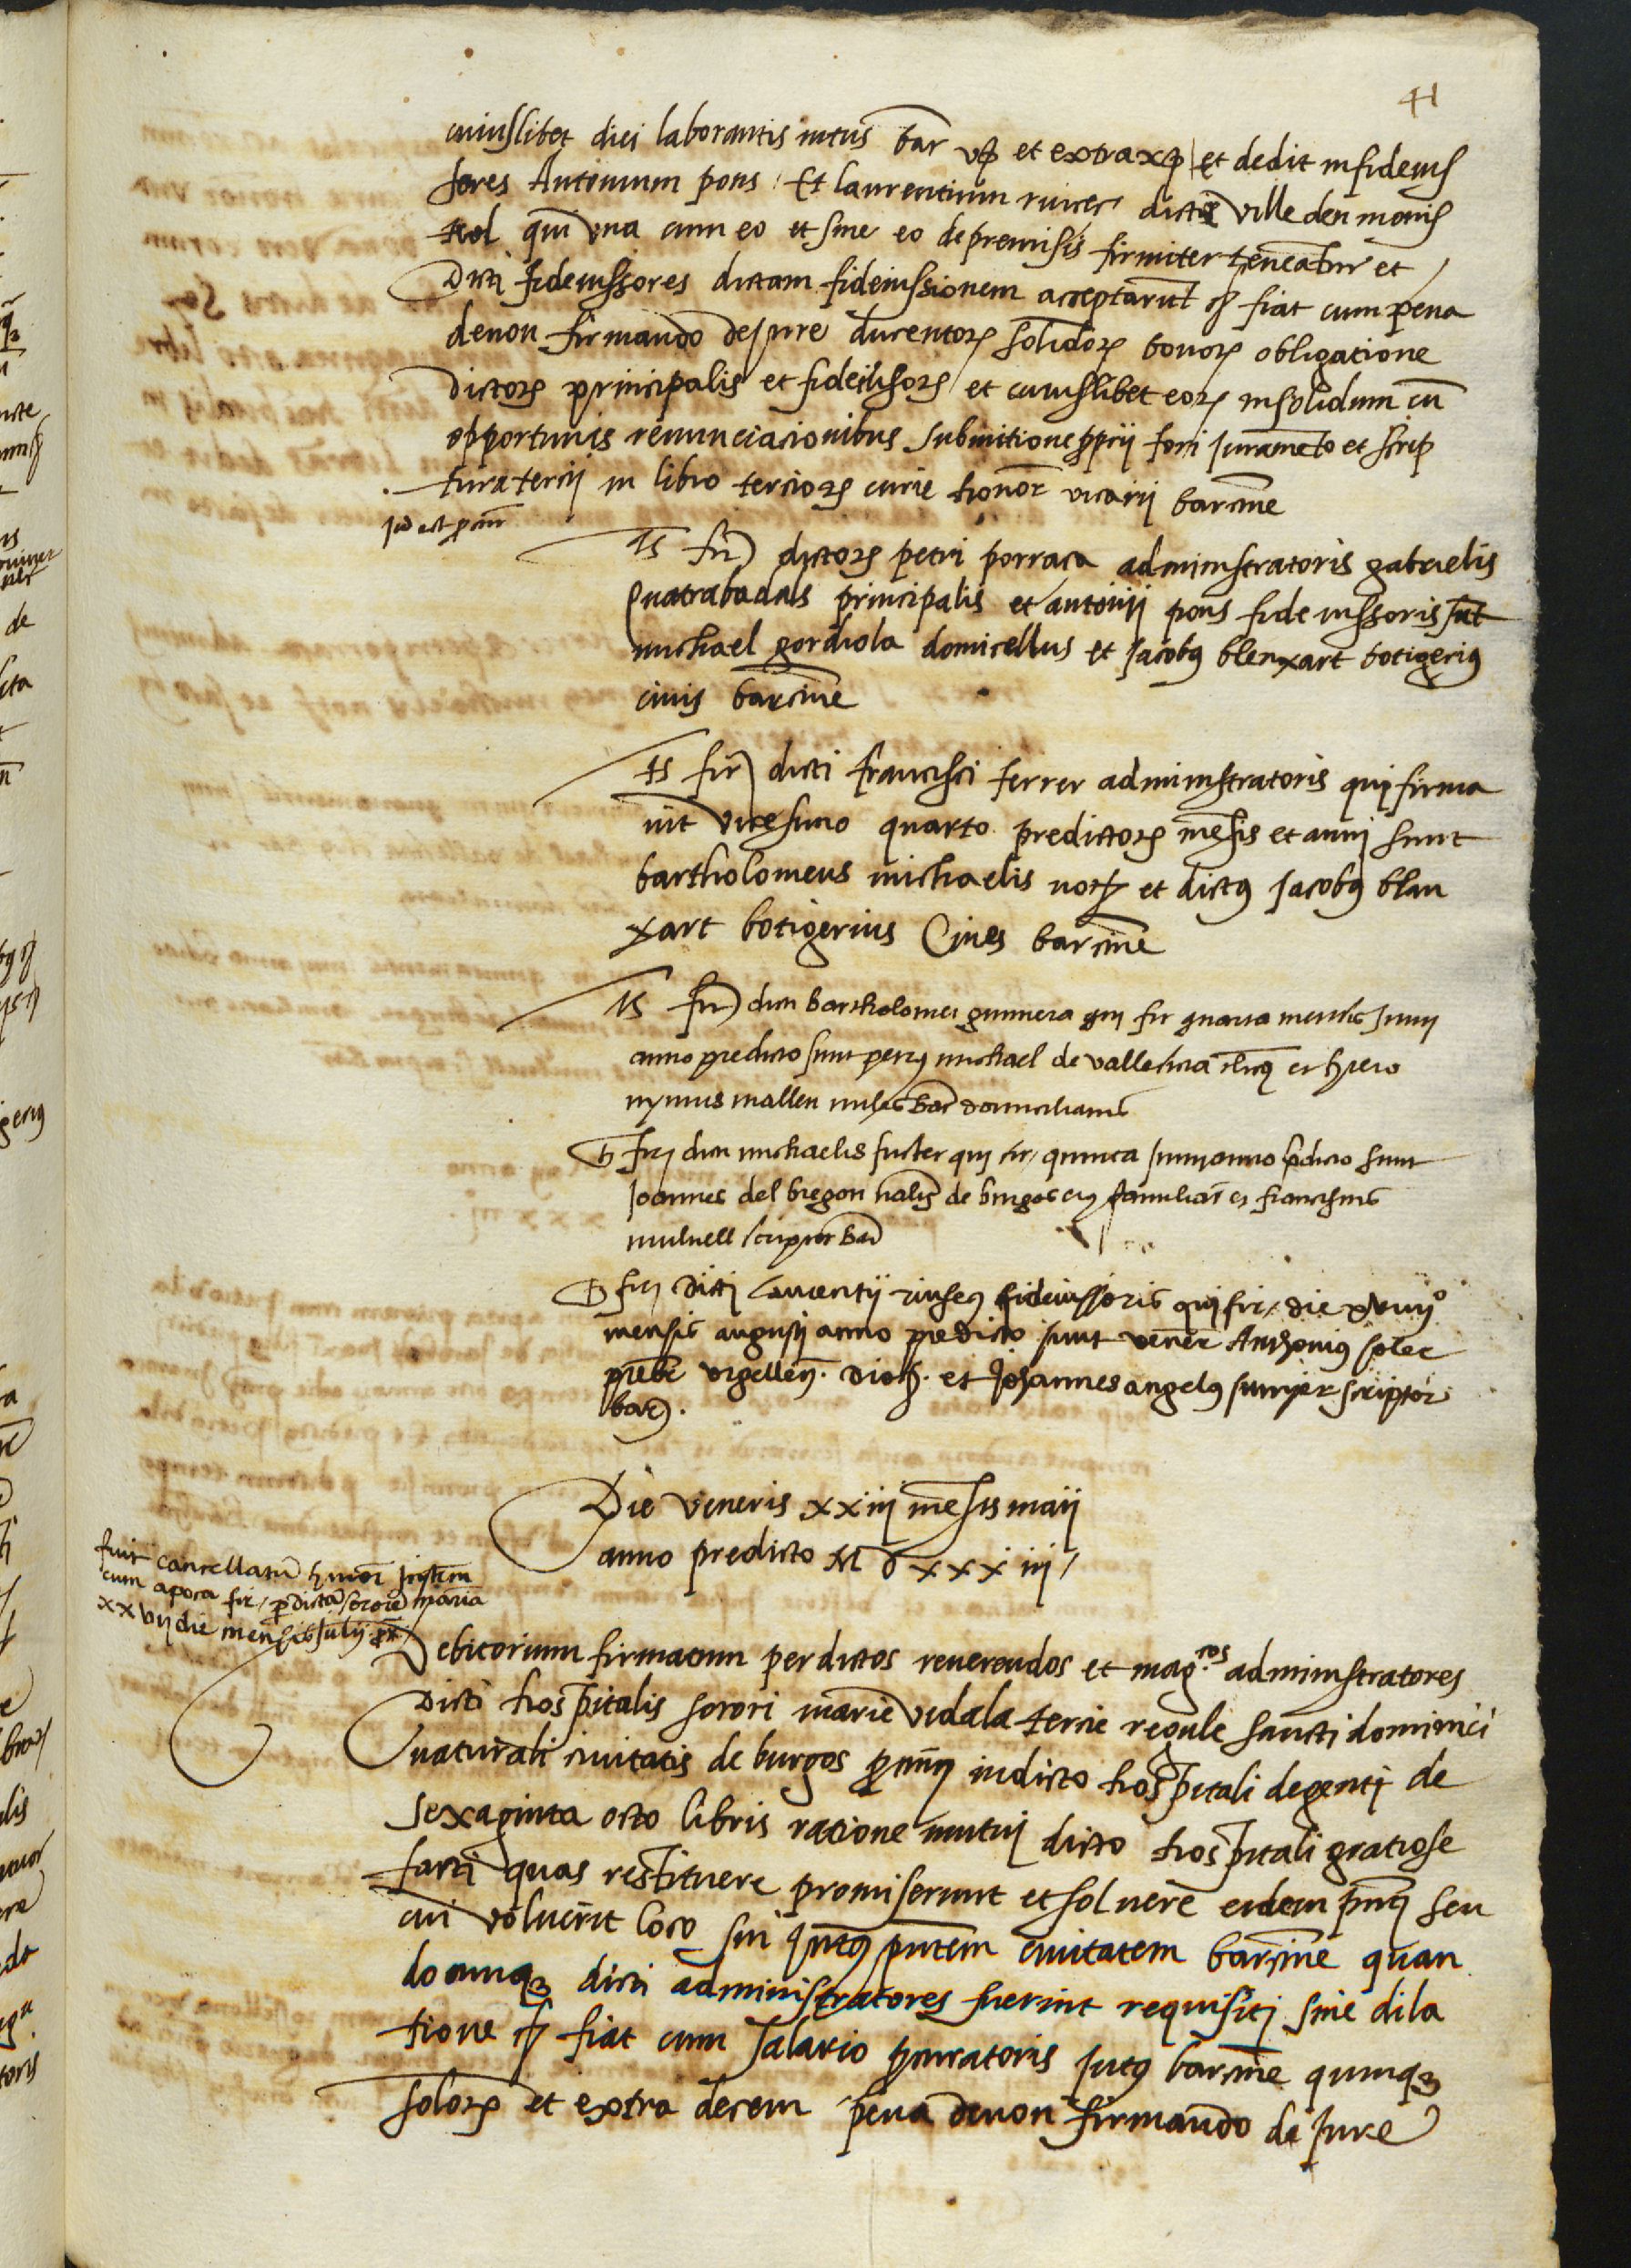 41
cuiuslibet diei laborantis intus bar vꝫ et extra xꝫ et dedit in fideius
sores Antonium pons Et laurentium dicte ville den monis
trol qui vna cum eo et sine eo de premissis firmiter teneatur et
Dicti fideiussores dictam fideiussionem acceptarūt fiat cum pena
de non firmando de jure ducentorꝫ solidorꝫ bonorꝫ obligatione
Dictorꝫ principalis et fideiussorꝫ et cuiuslibet eorꝫ insolidum cū
opportunis renunciacionibus submitione pprii fori juramēto et scrip
tura tercii in libro terciorꝫ curie honor vicarii barcine
Ts fir dictorꝫ petri porraca administratoris gabrielis
Quatrabadals principalis et antonii pons fideiussoris sūt
michael gordiola domicellus et Jacobꝰ blenxart botigeriꝰ
ciuis barcine
Ts fir dicti francisci ferrer administratoris qui firma
uit vicesimo quarto predictorꝫ mēsis et anni sunt
bartholomeus michaelis not et dictꝰ Jacobꝰ blan
xart botigerius Ciues barcine
Ts fir dicti bartholomei gumera qui fir quarta mensis Junii
anno predicto sunt petrꝰ michael de vallesicca et Hiero
nymus mallen miles Bar domiciliatus
Ts fir dicti michaelis fuster qui fir quinta Junii anno pdicto sunt
Joannes del bregon de burgos eiꝰ familiar et franciscus
mulnell scriptor Bar
Ts fir Dicti Laurentii fideiussoris qui fir die xviiiiº
mensis augusti anno predicto sunt vener Anthonius soler
prebr vrgellen. dioc. et Johannes angelꝰ sunyer scriptor
bar.
Die veneris xxiii mēsis maii
anno predicto M D xxxiii
fuit cancellatū huiōi instrm
cum apoca fir p dictā sororē mariā
xxvii die mensis Julii
Debitorium firmatum per dictos reuerendos et mag.cos administratores
Dicti hospitalis sorori marie vidala tercie regule sancti dominici
naturali ciuitatis de burgos in dicto hospitali degenti de
sexaginta octo libris ratione mutui dicto hospitali gratiose
facti quas restituere promiserunt et soluere eidem seu
cui voluerit loco sui intꝰ pntem ciuitatem barcine quan
documqꝫ dicti administratores fuerint requisiti sine dila
tione fiat cum salario pcuratoris intꝰ barcine quinqꝫ
solorꝫ et extra decem pena de non firmando de Jure